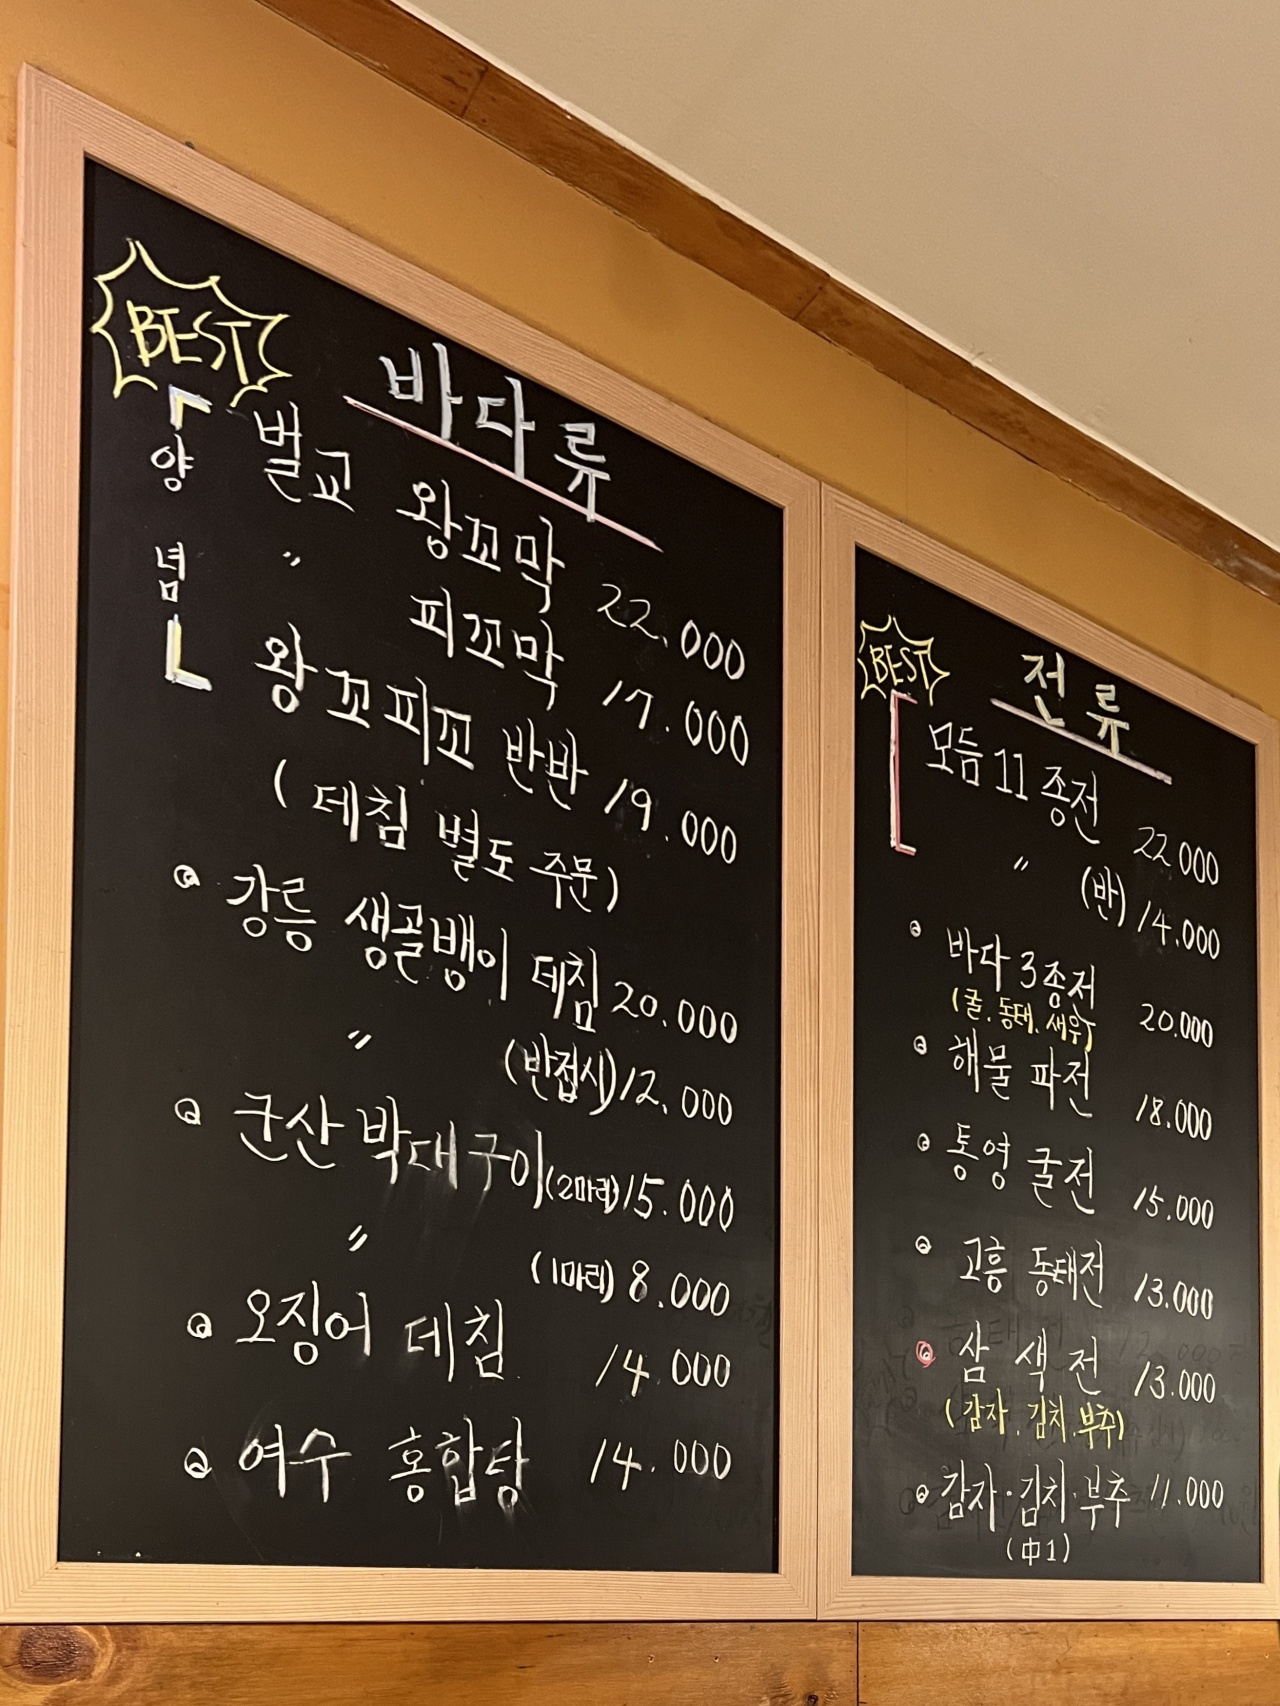 BEST
바다류
양념
벌교 왕꼬막 22.000
〃 피꼬막 17.000
왕꼬피꼬 반반 19.000
(데침 별도 주문)
강릉 생골뱅이 데침 20.000
〃 (반접시) 12.000
군산 박대구이 (2마리) 15.000
〃 (1마리) 8.000
오징어 데침 14.000
여수 홍합탕 14.000
BEST
전류
모듬 11종전 22.000
〃 (반) 14.000
바다 3종전 20.000
(굴.동태.새우)
해물 파전 18.000
통영 굴전 15.000
고흥 동태전 13.000
삼색전 13.000
(감자.김치.부추)
감자·김치·부추 11.000
(中1)